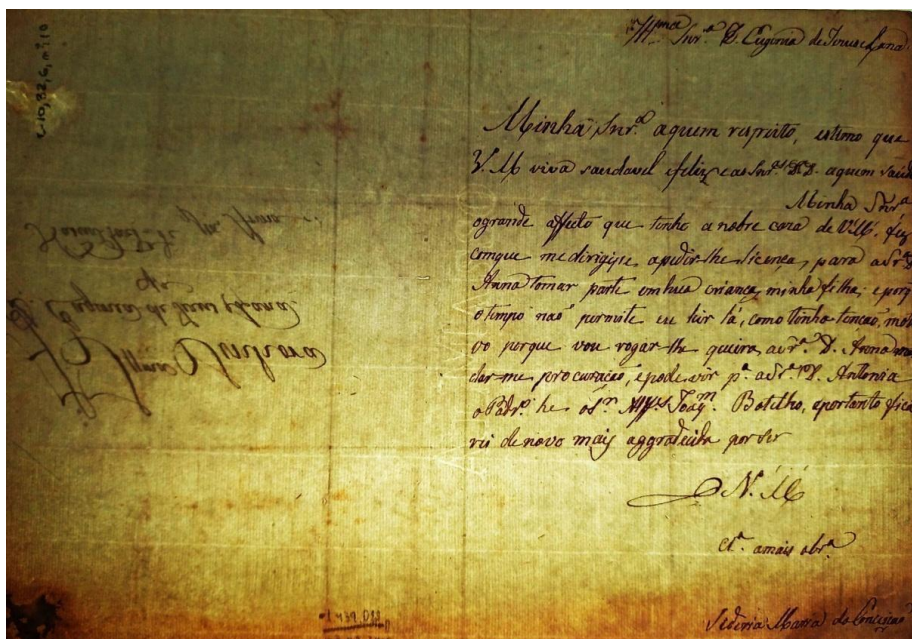 Illma Snr.ª D. Eugenia de Jesus e Anna
Minha Snr.ª aquem respeito, estimo que
V. M viva saudavel e feliz e as Snr.as D.D. aquem saud
Minha Snr.ª
ogrande affeto que tenho a nobre caza de V.M. fez
comque me dirigisse apedir-lhe licença, para aSr.ª D.
Anna tomar parte em hua criança, minha filha; e porq
otempo naõ permite eu hir lá, como tenho tençaõ, moti
vo porque vou rogar-lhe queira, aSr.ª D. Anna man
dar-me procuraçaõ, epode vir p.ª aSr.ª D. Antonia
o Padr.º he oSr. Alf.s Joaq.m Botelho, eportanto fica
rei de novo mais aggradecida por ser
D. V. M
Cr.ª amais obr.ª
Maria da Conceiçaõ
Senhora
D. Eugenia de Jesus e Anna
C-10,32,6, nº.10